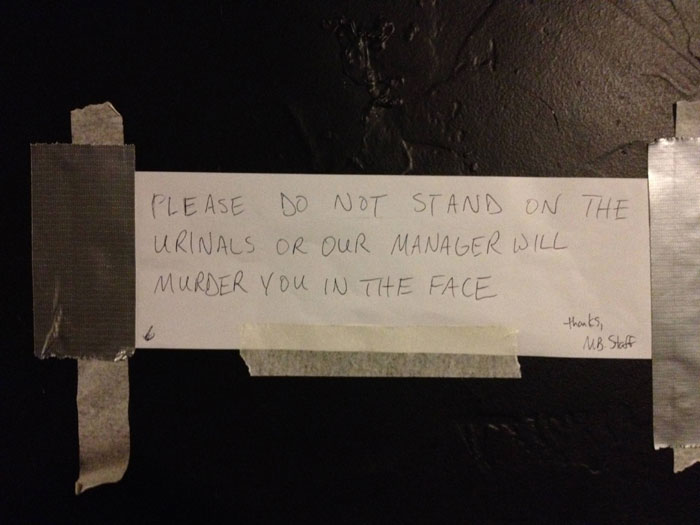 PLEASE DO NOT STAND ON THE
URINALS OR OUR MANAGER WILL
MURDER YOU IN THE FACE
thanks,
M.B. Staff